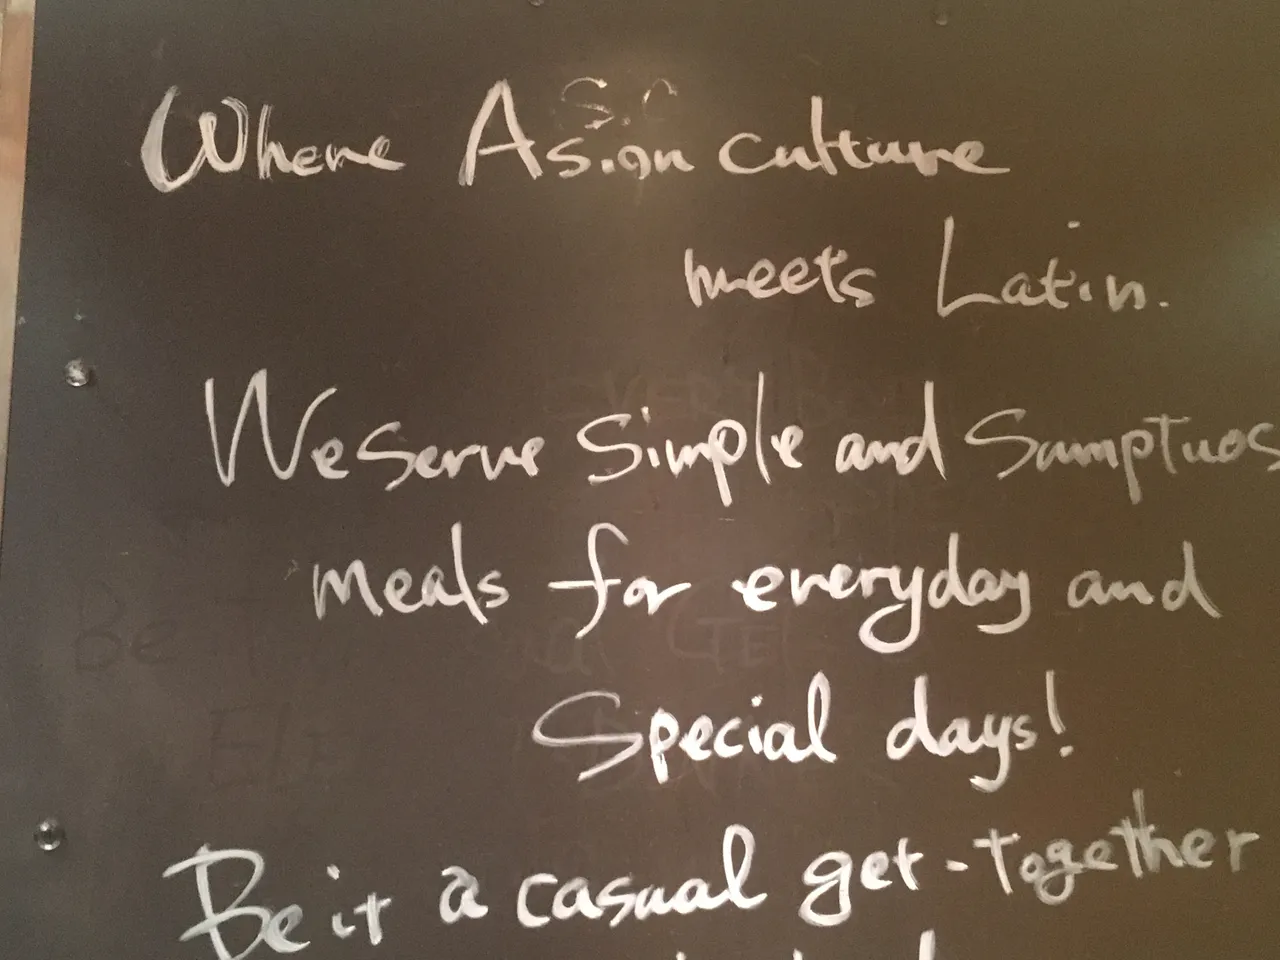 Where Asian culture
meets Latin.
We serve Simple and Samptuos
meals for everyday and
Special days!
Be it a casual get-together